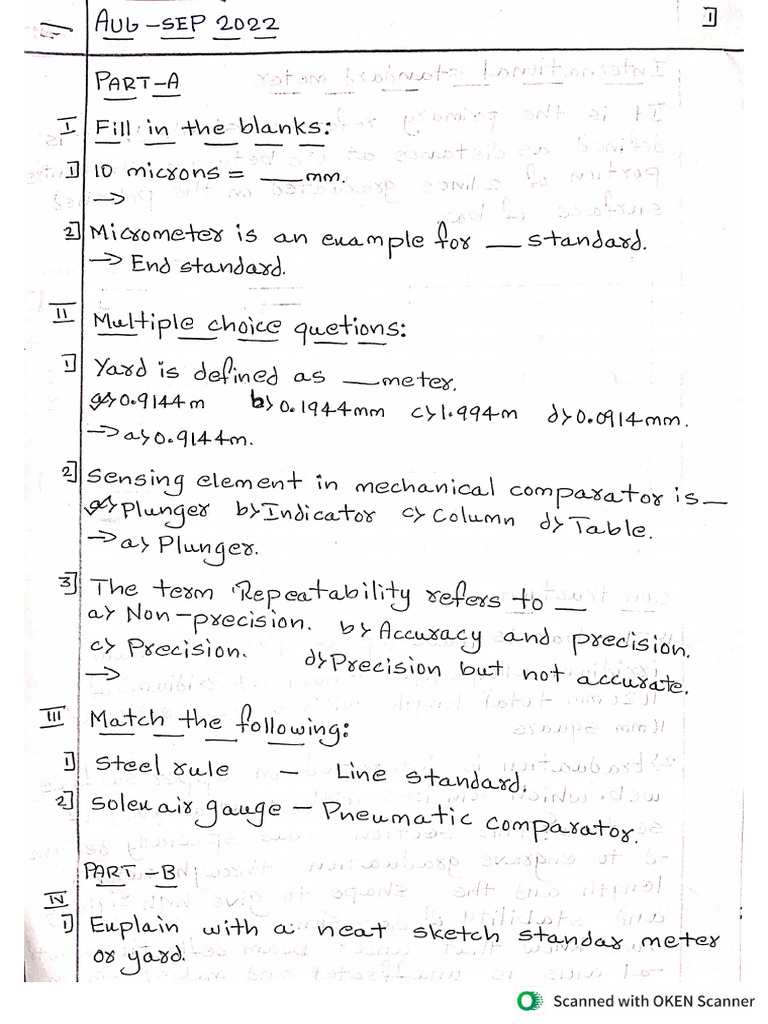 AUG-SEP 2022
1
PART-A
I Fill in the blanks:
1] 10 microns = __mm.
→
2] Micrometer is an example for __ standard.
→ End standard.
II Multiple choice quetions:
1] Yard is defined as __meter.
a> 0.9144m b> 0.1944mm c> 1.994m d> 0.0914mm.
→ a> 0.9144m.
2] Sensing element in mechanical comparator is__
a> Plunger b> Indicator c> Column d> Table.
→ a> Plunger.
3] The term Repeatability refers to __
a> Non-precision. b> Accuracy and precision.
c> Precision. d> Precision but not accurate.
→
III Match the following:
1] Steel rule - Line standard.
2] Solex air gauge - Pneumatic comparator.
PART-B
IV
1] Explain with a neat sketch standar meter
or yard.
Scanned with OKEN Scanner